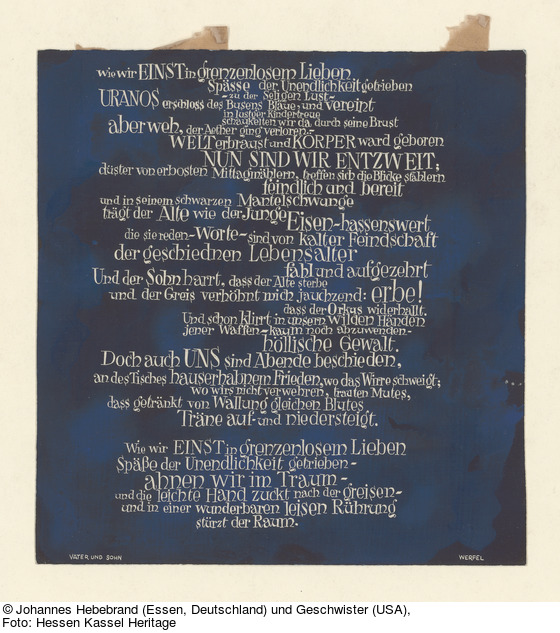 wie wir EINST in grenzenlosem Lieben
Spässe der Unendlichkeit getrieben
-zu der Seligen Lust-
URANOS erschloss des Busens Bläue, und vereint
in lustger Kindertreue
schaukelten wir da durch seine Brust
aber weh, der Aether ging verloren.-
WELT erbraust und KÖRPER ward geboren
NUN SIND WIR ENTZWEIT;
düster von erbosten Mittagmählern, treffen sich die Blicke stählern
feindlich und bereit
und in seinem schwarzen Mantelschwunge
trägt der Alte wie der Junge Eisen-hassenswert
die sie reden-Worte-sind von kalter Feindschaft
der geschiednen Lebensalter
fahl und aufgezehrt
Und der Sohn harrt, dass der Alte sterbe
und der Greis verhöhnt mich jauchzend: erbe!
dass der Orkus widerhallt.
Und schon klirrt in unsern wilden Händen
jener Waffen-kaum noch abzuwenden-
höllische Gewalt.
Doch auch UNS sind Abende beschieden,
an des Tisches hauserhabnem Frieden, wo das Wirre schweigt;
wo wirs nicht verwehren, trauten Mutes,
dass getränkt von Wallung gleichen Blutes
Träne auf-und niedersteigt.
Wie wir EINST in grenzenlosem Lieben
Späße der Unendlichkeit getrieben-
ahnen wir im Traum-
und die leichte Hand zuckt nach der greisen-
und in einer wunderbaren leisen Rührung
stürzt der Raum.
VATER UND SOHN WERFEL
© Johannes Hebebrand (Essen, Deutschland) und Geschwister (USA),
Foto: Hessen Kassel Heritage